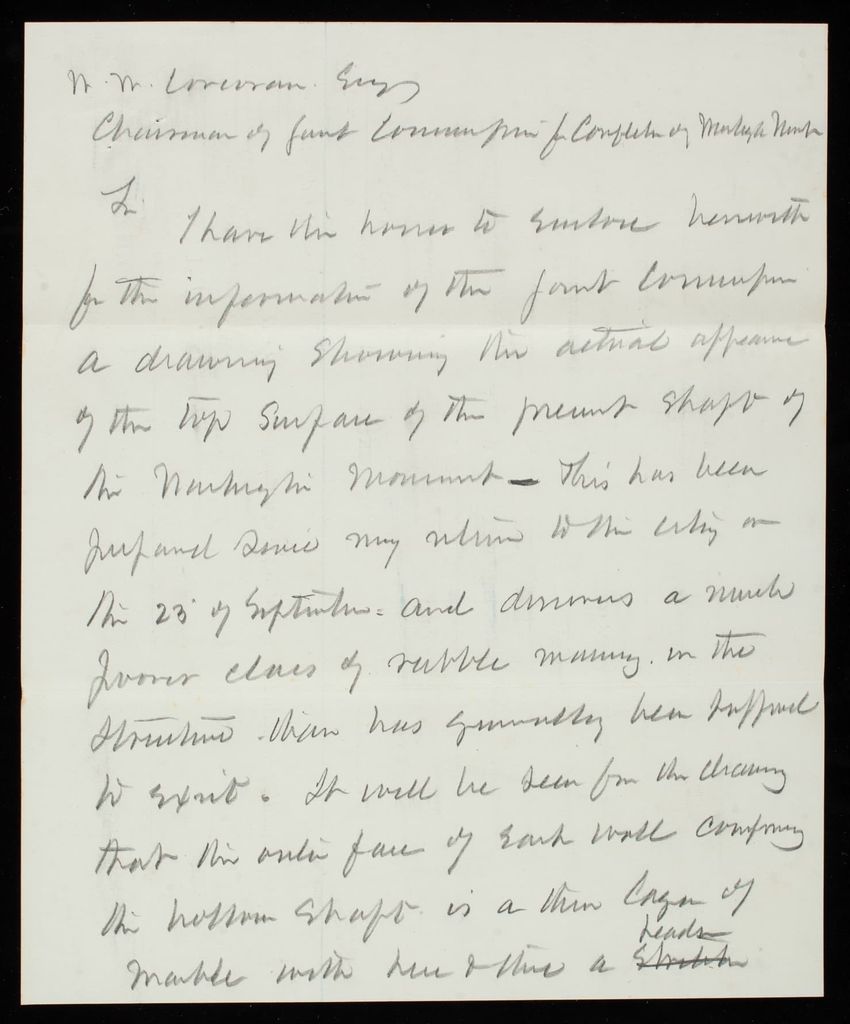 W. W. Corcoran. Esq
Chairman of Joint Commission for Completn of Washgtn Monmt
Sir I have the honor to enclose herewith
for the information of the Joint Commission
a drawing showing the actual appearance
of the top surface of the present shaft of
the Washington Monument — This has been
prepared since my return to the city on
the 23 of September. and discovers a much
poorer class of rubble masonry. in the
structure. than has generally been supposed
to exist. It will be seen from the drawing
that the outer face of each wall composing
the hollow shaft. is a thin layer of
header
marble with here & there a stretcher